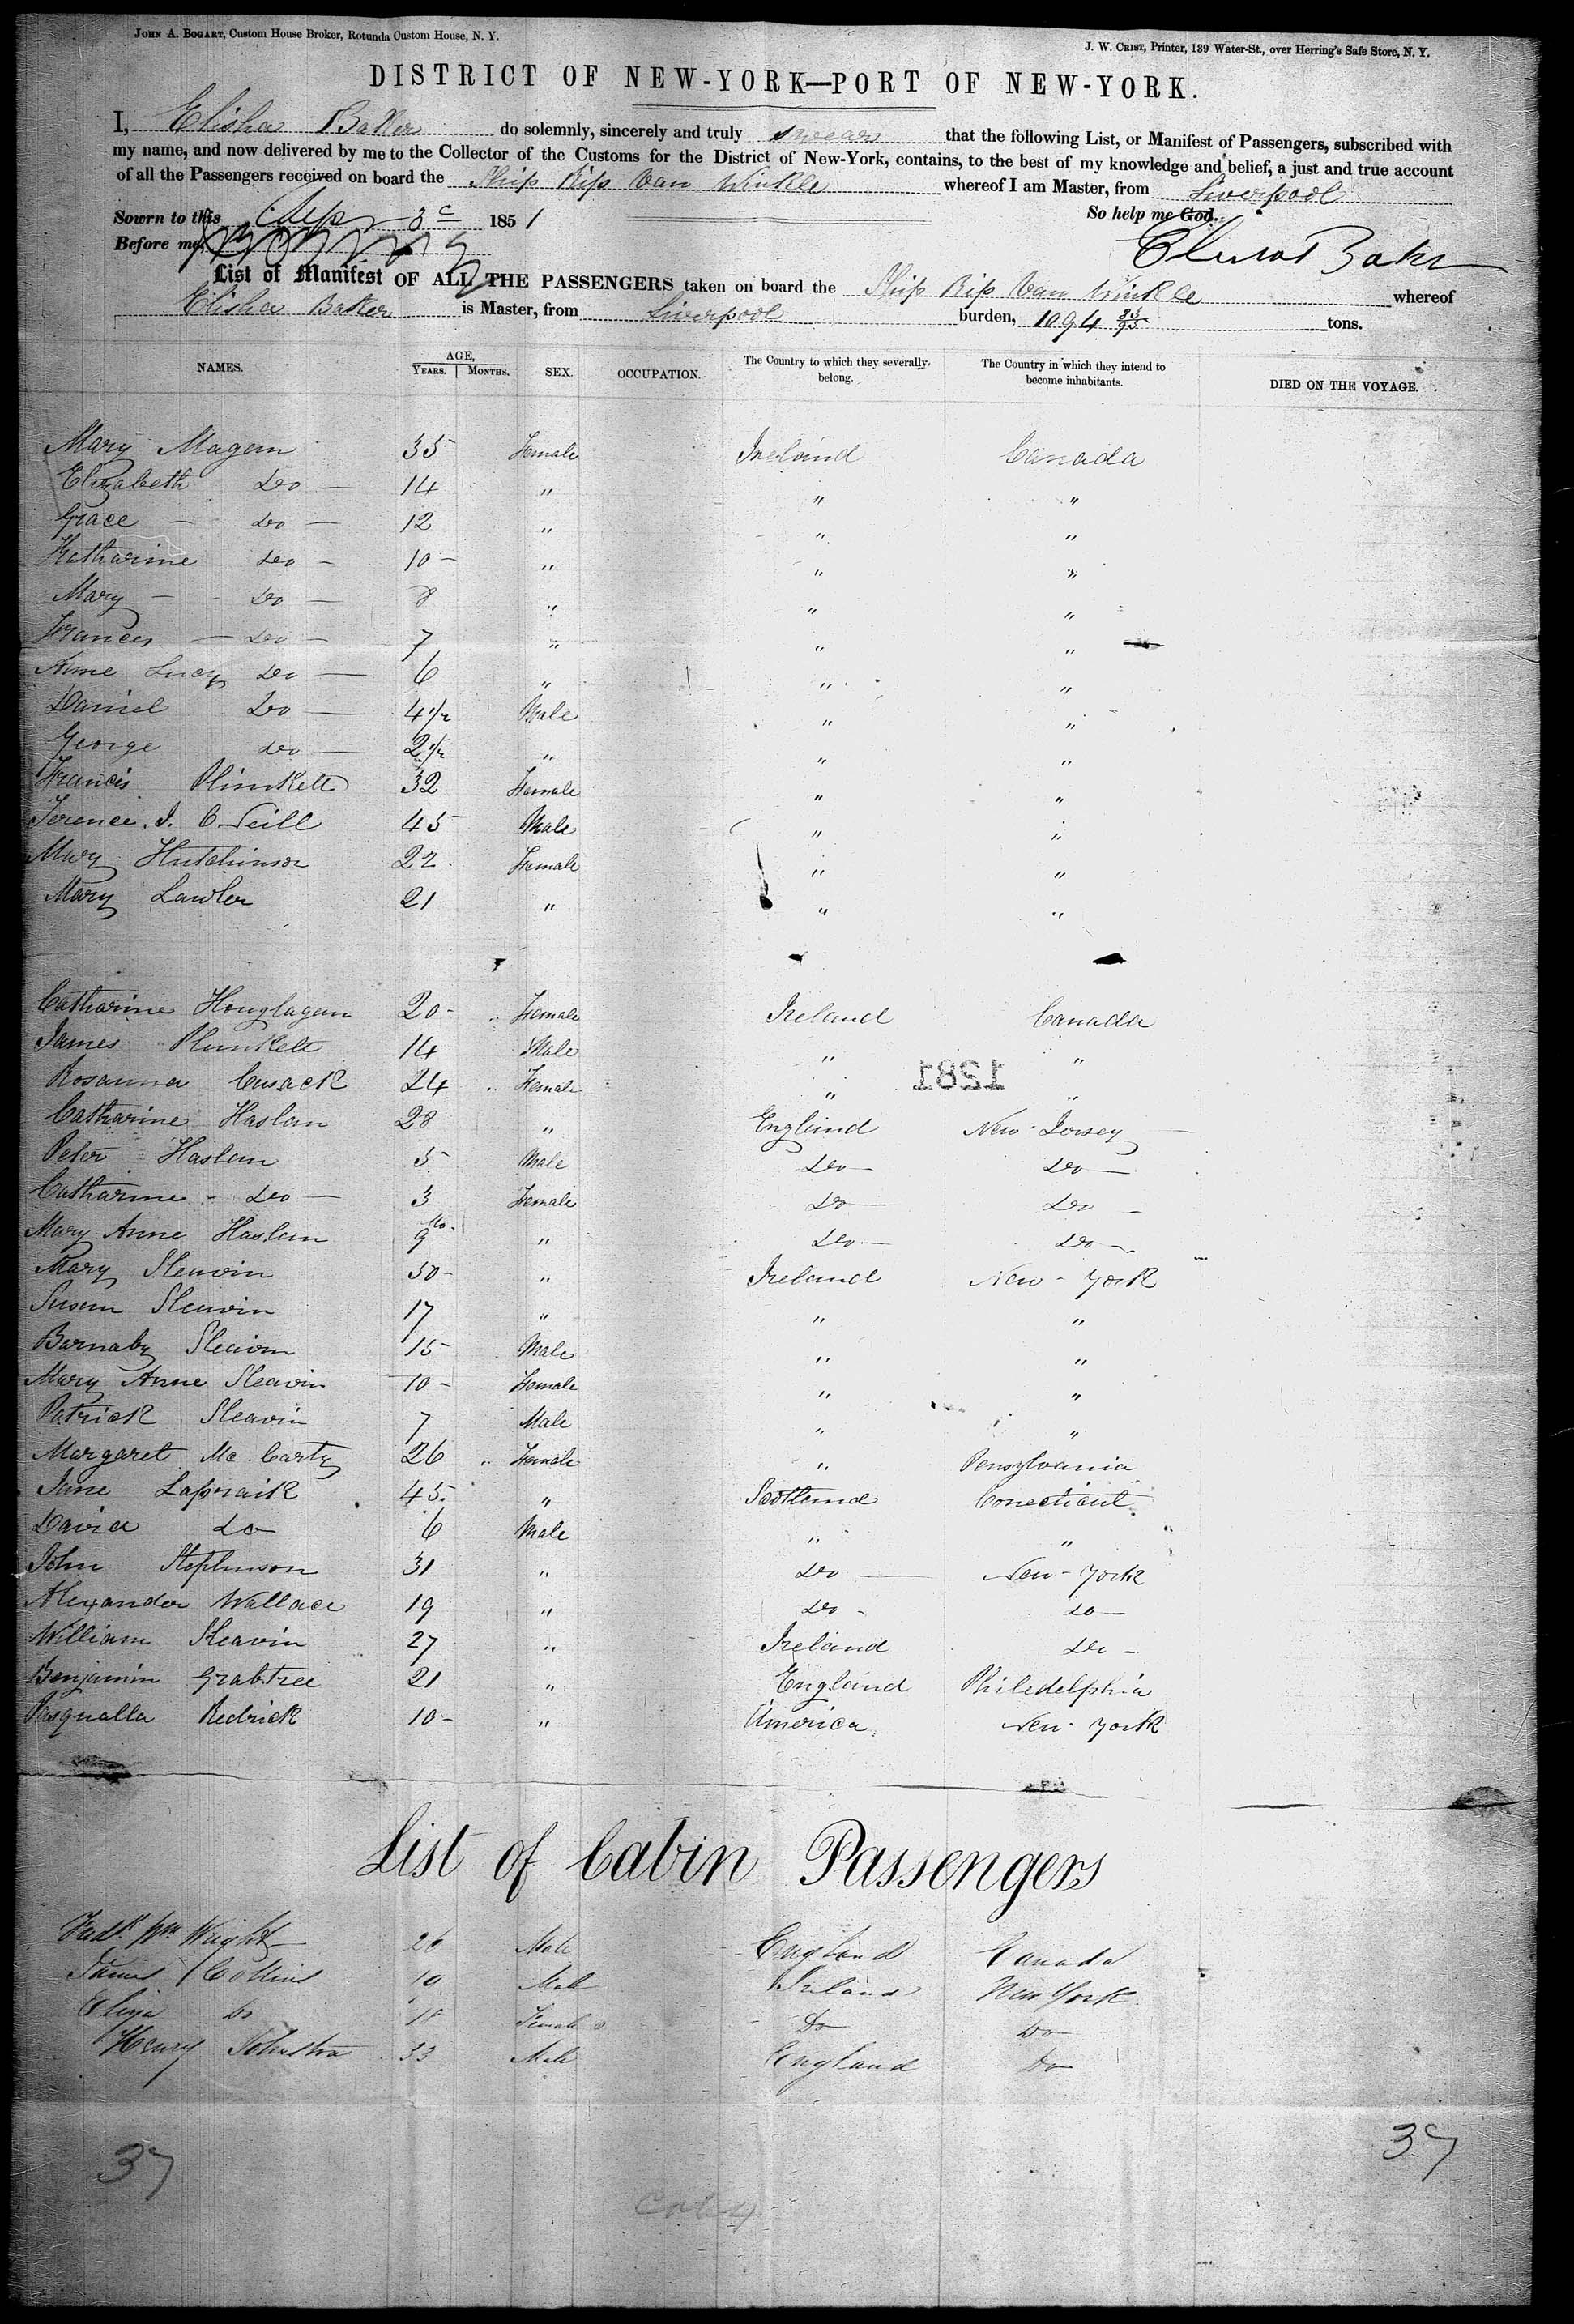 JOHN A. BOGART, Custom House Broker, Rotunda Custom House, N. Y.
J. W. CRIST, Printer, 139 Water-St., over Herring's Safe Store, N. Y.
DISTRICT OF NEW-YORK—PORT OF NEW-YORK.
I, Elisha Baker do solemnly, sincerely and truly swear that the following List, or Manifest of Passengers, subscribed with
my name, and now delivered by me to the Collector of the Customs for the District of New-York, contains, to the best of my knowledge and belief, a just and true account
of all the Passengers received on board the Ship Rip Van Winkle whereof I am Master, from Liverpool
Sowrn to this Sep 3 1851 So help me God.
Before me,
Elisha Baker
List of Manifest OF ALL THE PASSENGERS taken on board the Ship Rip Van Winkle whereof
Elisha Baker is Master, from Liverpool burden, 1094 tons.
NAMES. AGE, YEARS. MONTHS. SEX. OCCUPATION. The Country to which they severally belong. The Country in which they intend to become inhabitants. DIED ON THE VOYAGE.
Mary Magan 35 Female Ireland Canada
Elizabeth Do — 14 " " "
Grace — Do — 12 " " "
Katharine Do — 10 — " " "
Mary — Do — 8 " " "
Frances — Do — 7 " " "
Anne Lucy Do — 6 " " "
Daniel Do — 4 1/2 Male " "
George Do — 2 1/2 " " "
Francis Plunkett 32 Female " "
Terence. J. O Neill 45 Male " "
Mary Hutchinson 22 Female " "
Mary Lawler 21 " " "
Catharine Houglagan 20 - Female Ireland Canada
James Plunkett 14 Male " "
1281
Rosanna Cusack 24 Female " "
Catharine Haslam 28 " England New-Jersey
Peter Haslam 5 Male Do — Do —
Catharine - Do — 3 Female Do — Do —
Mary Anne Haslam 9 Mo. " Do — Do —
Mary Sleavin 50 - " Ireland New-York
Susan Sleavin 17 " " "
Barnaby Sleavin 15 Male " "
Mary Anne Sleavin 10 - Female " "
Patrick Sleavin 7 Male " "
Margaret Mc. Carty 26 Female " Pensylvania
Jane Lapraik 45. " Scotland Conecticut
David Do 6 Male " "
John Stephinson 31 " Do — New-York
Alexander Wallace 19 " Do - Do —
William Sleavin 27 " Ireland Do -
Benjamin Grabtree 21 " England Philedelphia
Pasqualla Redrick 10 - " America New-York
List of Cabin Passengers
Fredk. Wm Wright 26 Male England Canada
James Collins 19 Male Ireland New York
Eliza Do 18 Female Do Do
Henry Johnston 33 Male England Do
37
37